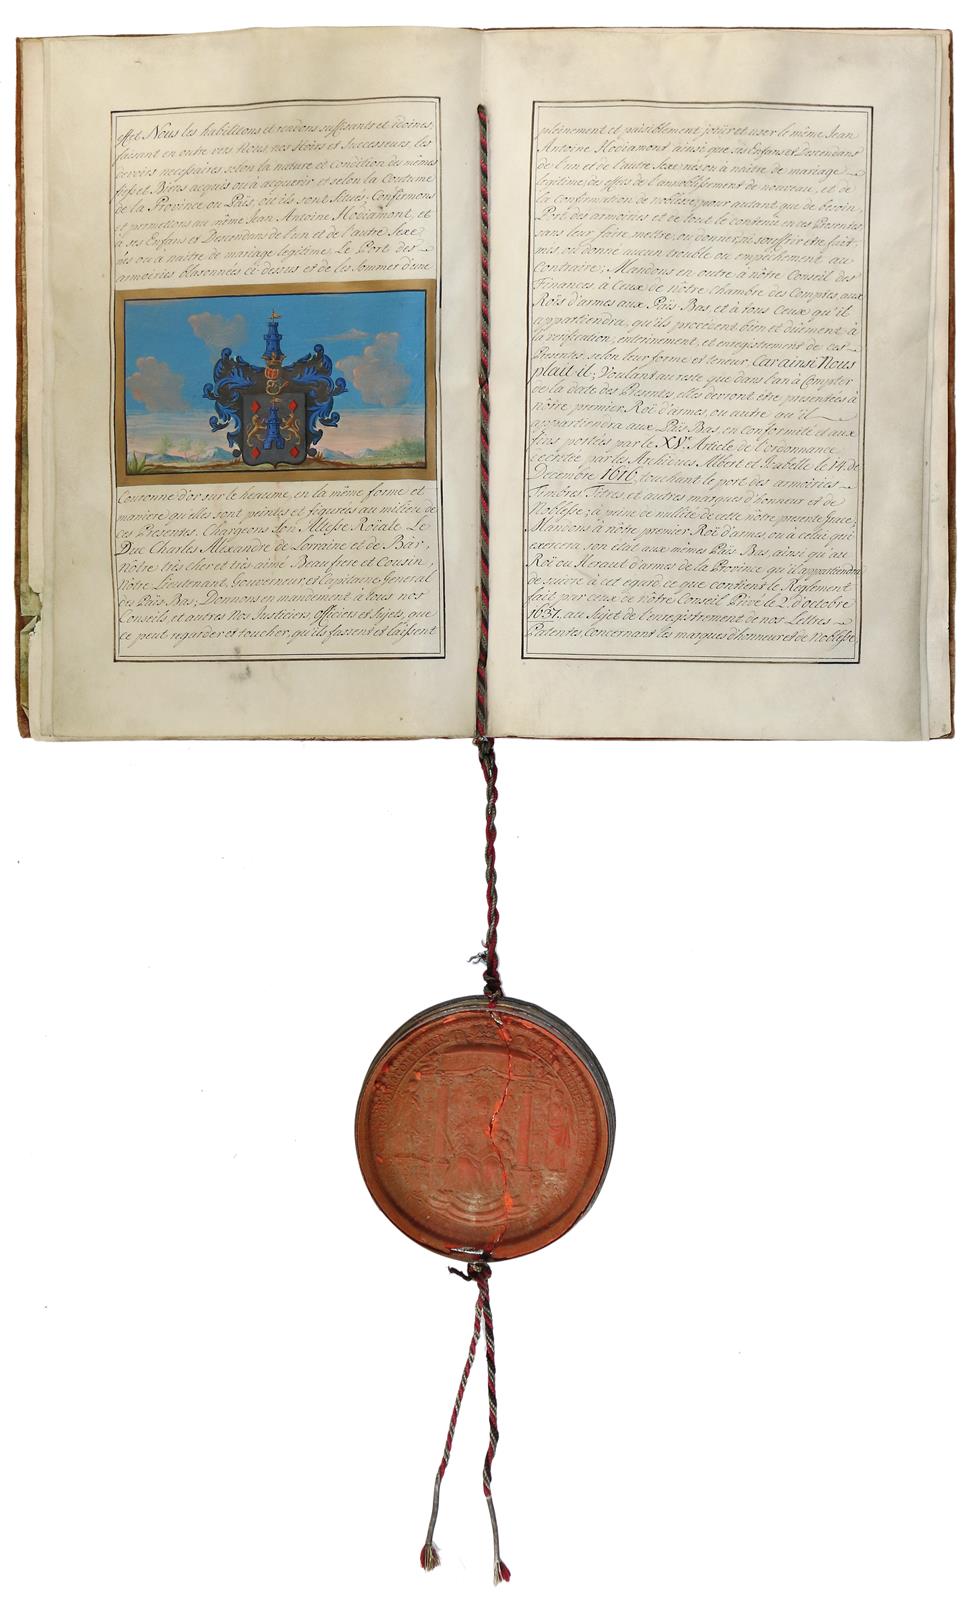 effet Nous les habilitons et rendons suffisants et idoines,
faisant en outre vers Nous, nos Hoirs et Successeurs, les
devoirs necessaires selon la nature et Condition du mêmes
fiefs et Biens acquis ou à acquerir, et selon la Coutume
de la Province ou Païs, où ils sont Situés; Confirmons
et permettons au même Jean Antoine Hodiamont, et
à ses Enfans et Descendans de l'un et de l'autre Sexe
nés ou à naitre de mariage legitime, Le Port des
armoiries blasonnées cÿ dessus et de les Sommer d'une
Couronne d'or sur le heaume, en la même forme et
maniere qu'elles sont peintes et figurées au milieu de
ces Presentes. Chargeons Son Altesse Roïale Le
Duc Charles Alexandre de Lorraine et de Bär,
nôtre très cher et très aimé Beaufrere et Cousin,
Nôtre Lieutenant, Gouverneur et Capitaine General
des Païs Bas; Donnons en mandement à tous nos
Conseils, et autres Nos Justiciers, officiers et Sujets, que
ce peut regarder et toucher, qu'ils fassent et laissent
pleinement et paisiblement joüir et user le même Jean
Antoine Hodiamont ainsi que ses Enfans et Descendans
de l'un et de l'autre Sexe, nés ou à naître de mariage
legitime, des effets de l'annoblissement de nouveau, et de
la Confirmation de noblesse, pour autant que de besoin,
Port des armoiries et de tout le contenu en ces Presentes
sans leur faire, mettre, ou donner, ni souffrir être fait,
mis ou donné aucun trouble ou empêchement au
Contraire; Mandons en outre à nôtre Conseil des
Finances, à Ceux de nôtre Chambre des Comptes, aux
Roïs d'armes aux Païs Bas, et à tous Ceux qu'il
appartiendra, qu'ils procèdent bien et düement à
la verification, enterinement, et enregistrement de ces
Presentes, selon leur forme et teneur, Car ainsi Nous
plait-il; Voulant au reste que dans l'an à Compter
de la date des Presentes, elles devront être presentées à
nôtre premier Roï d'armes, ou autre qu'il
appartiendra aux Païs Bas, en conformité et aux
fins portées par le XVe. Article de l'ordonnance
decretée par les Archiducs Albert et Isabelle le 14. de
Decembre 1616, touchant le port des armoiries
Timbres, Titres, et autres marques d'honneur et de
Noblesse; à peine de nullité de cette nôtre presente grace;
Mandons à nôtre premier Roï d'armes, ou à celui qui
exercera son état aux mêmes Païs Bas, ainsi qu'au
Roï ou Heraut d'armes de la Province qu'il appartiendra
de suivre à cet egard, ce que contient le Reglement
fait par ceux de nôtre Conseil Privé le 2. d'octobre
1637. au Sujet de l'enregistrement de nos Lettres
Patentes, Concernant les marques d'honneur et de Noblesse,